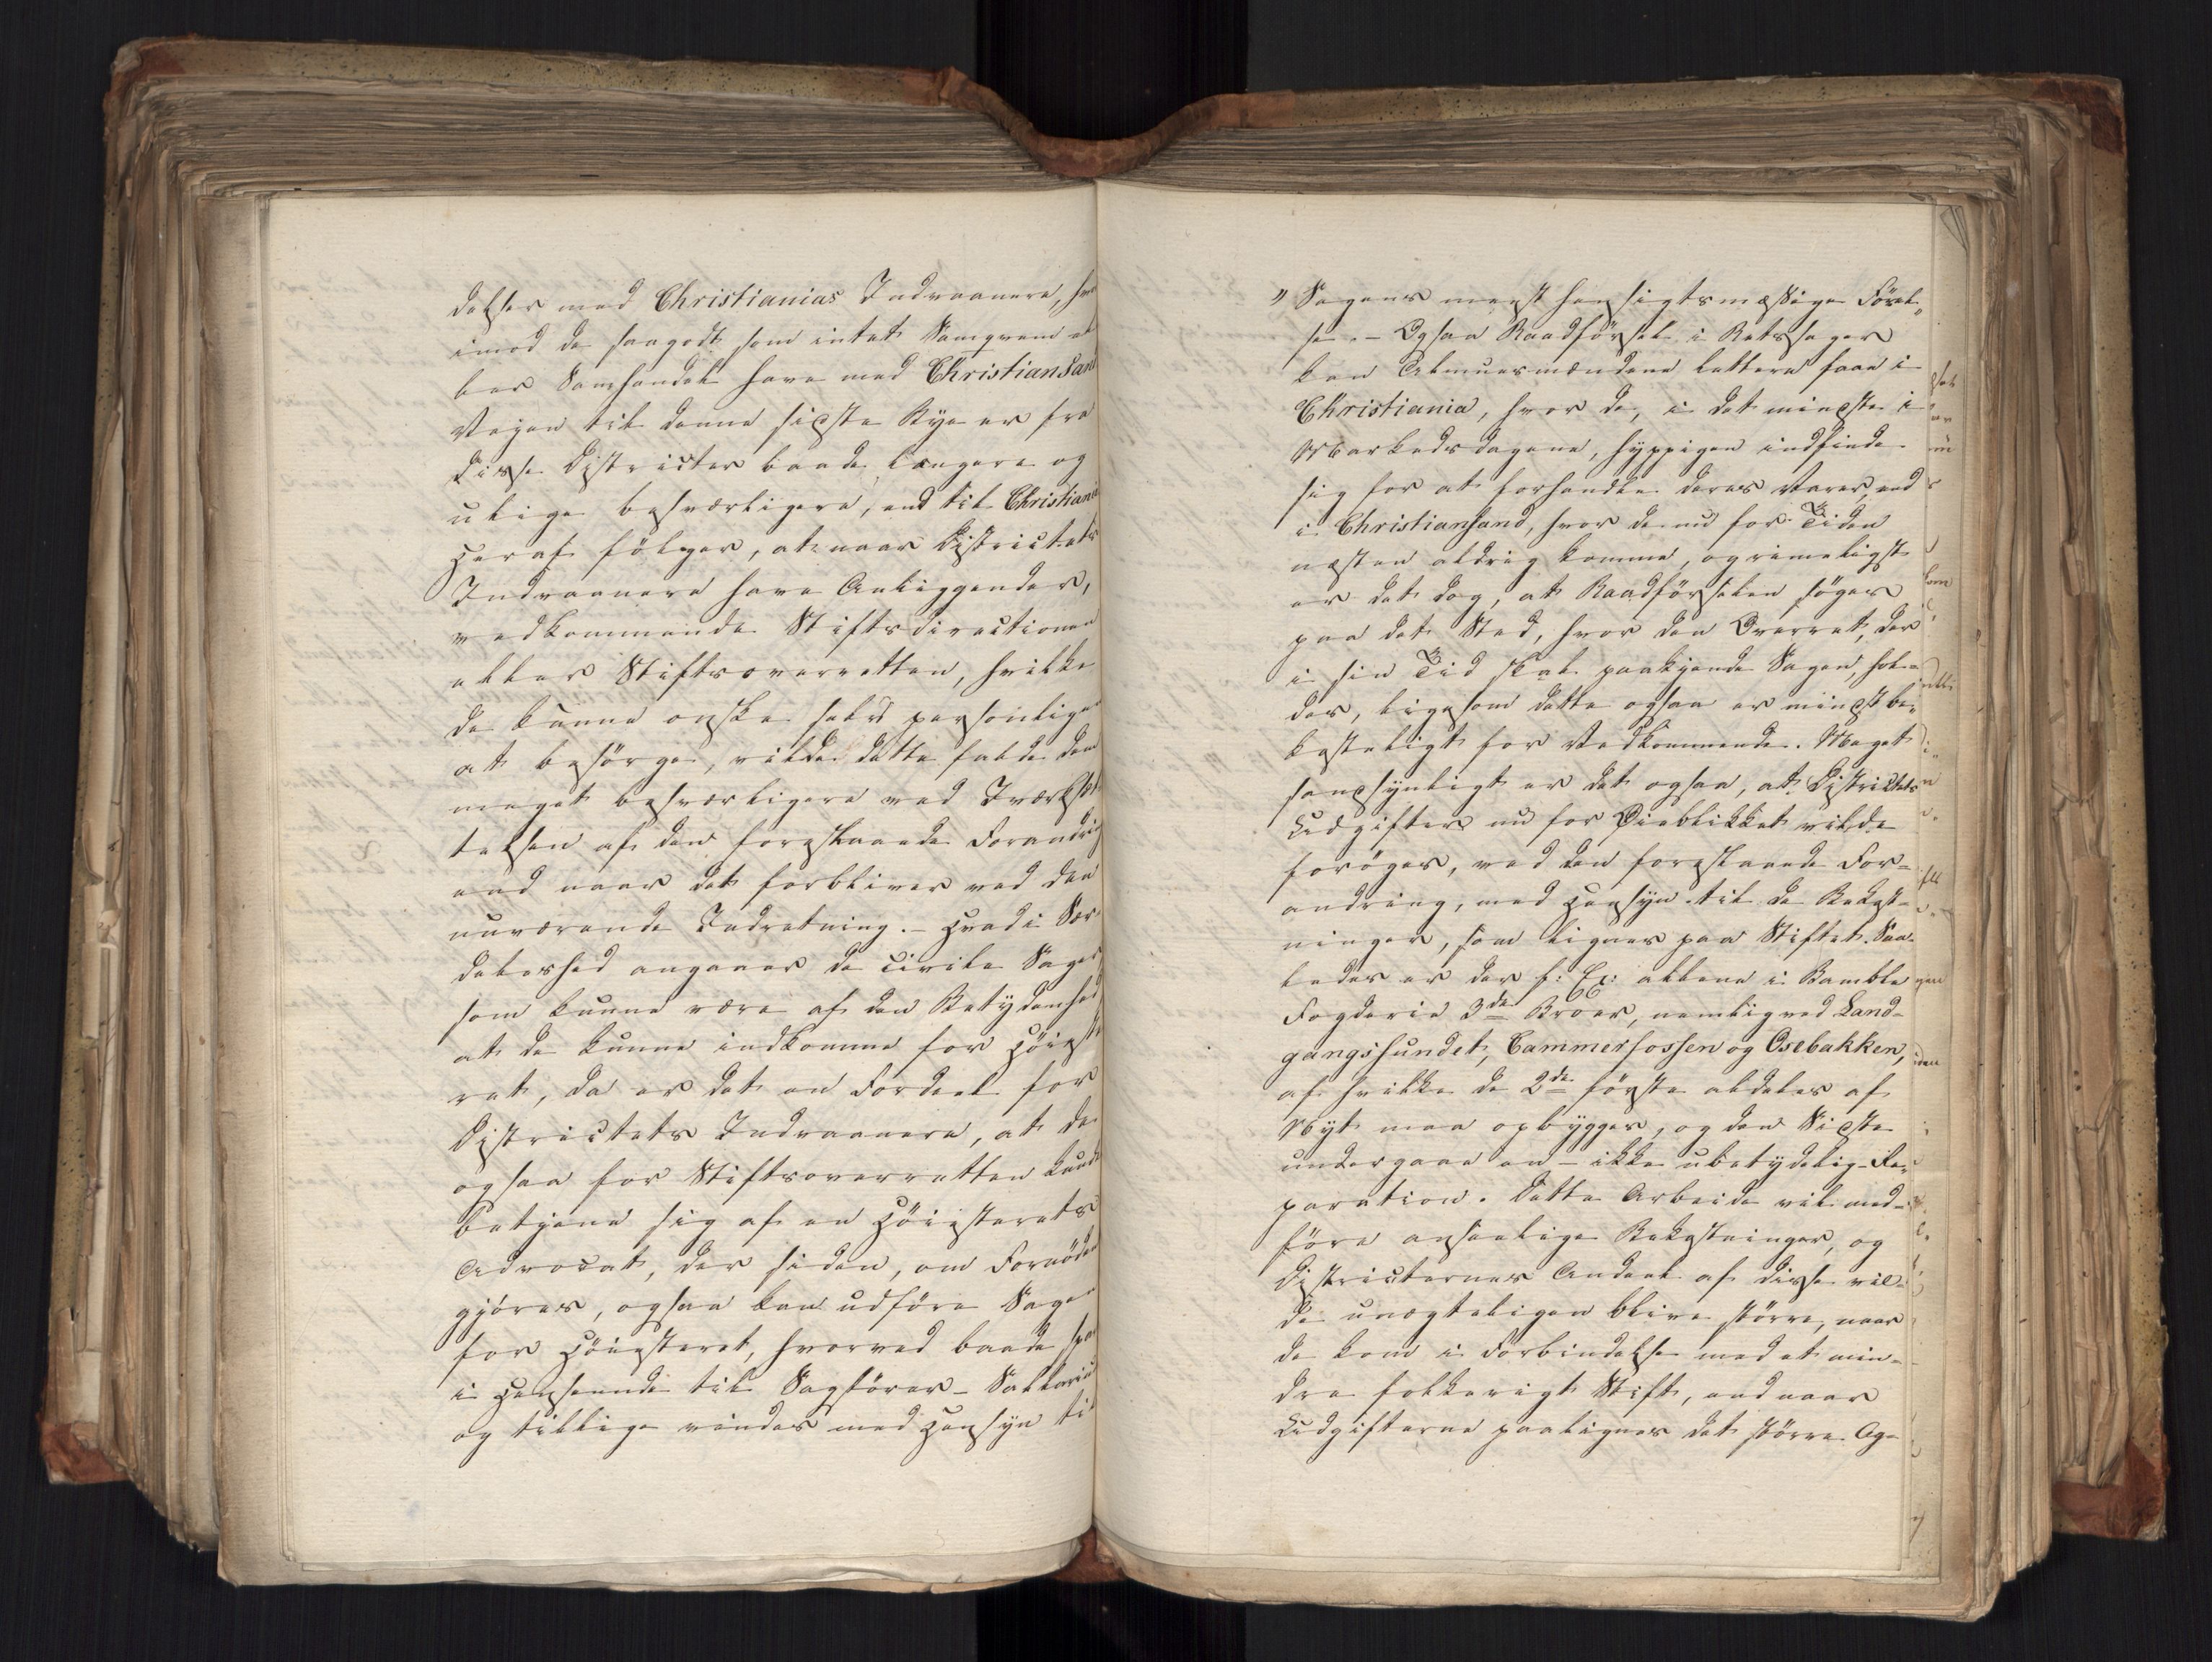 delser med Christianias Indvaanere, hvor
imod de saagodt som intet Samqvem el
ler Samhandel have med Christiansand
Veien til denne sidste Bye er fra
disse Districter baade længere og
ulige besværligere, end til Christiania
Heraf fölger, at naar Districtets
Indvaanere have Anliggender,
vedkommende Stiftsdirectionen
eller Stiftsoverretten, hvilke
de kunne önske selv personligen
at besörge, vilde dette falde dem
meget besværligere ved Iværksæt
telsen af den foreslaaede Forandring
end naar det forbliver ved den
nuværende Indretning. – Hvad i Sær
deleshed angaaer de civile Sager
som kunne være af den Betydenhed
at de kunne indkomme for Höieste
ret, da er det en Fordeel for
Districtets Indvaanere, at de
ogsaa for Stiftsoverretten kunde
betjene sig af en Höiesterets
Advocat, der siden, om Fornöden
gjöres, ogsaa kan udföre Sagen
for Höiesteret, hvorved baade spares
i Henseende til Sagförer-Sallarium
og tillige vindes med Hensyn til
" Sagens meest hensigtsmæssige Förel„
se. – Ogsaa Raadförsel i Retssager
kan Almuesmændene lettere faae i
Christiania, hvor de, i det mindste i
Markedsdagene, hyppigen indfinde
sig for at forhandle deres Varer, end
i Christiansand, hvor de nu for Tiden
næsten aldrig komme, og rimeligst
er det dog, at Raadförselen söges
paa det Sted, hvor den Overret, der
i sin Tid skal paakjende Sagen, hol-
des, ligesom dette ogsaa er mindst be„
kosteligt for Vedkommende. Meget
sandsynligt er det ogsaa, at Districtets
Udgifter nu for Öieblikket vilde
foröges, ved den foreslaaede For-
andring, med Hensyn til de Bekost-
ninger, som lignes paa Stiftet. Saa-
ledes er der f: Ex: allene i Bamble
Fogderie 3de Broer, nemlig ved Land-
gangssundet, Cammerfossen og Osebakken,
af hvilke de 2de förste aldeles af
Nyt maa opbygges, og den Sidste
undergaae en – ikke ubetydelig – Re„
paration. Dette Arbeide vil med-
före anseelige Bekostninger, og
Districternes Andeel af disse vil-
de unægteligen blive större, naar
de kom i Forbindelse med et min-
dre folkerigt Stift, end naar
Udgifterne paalignes det större Ag-